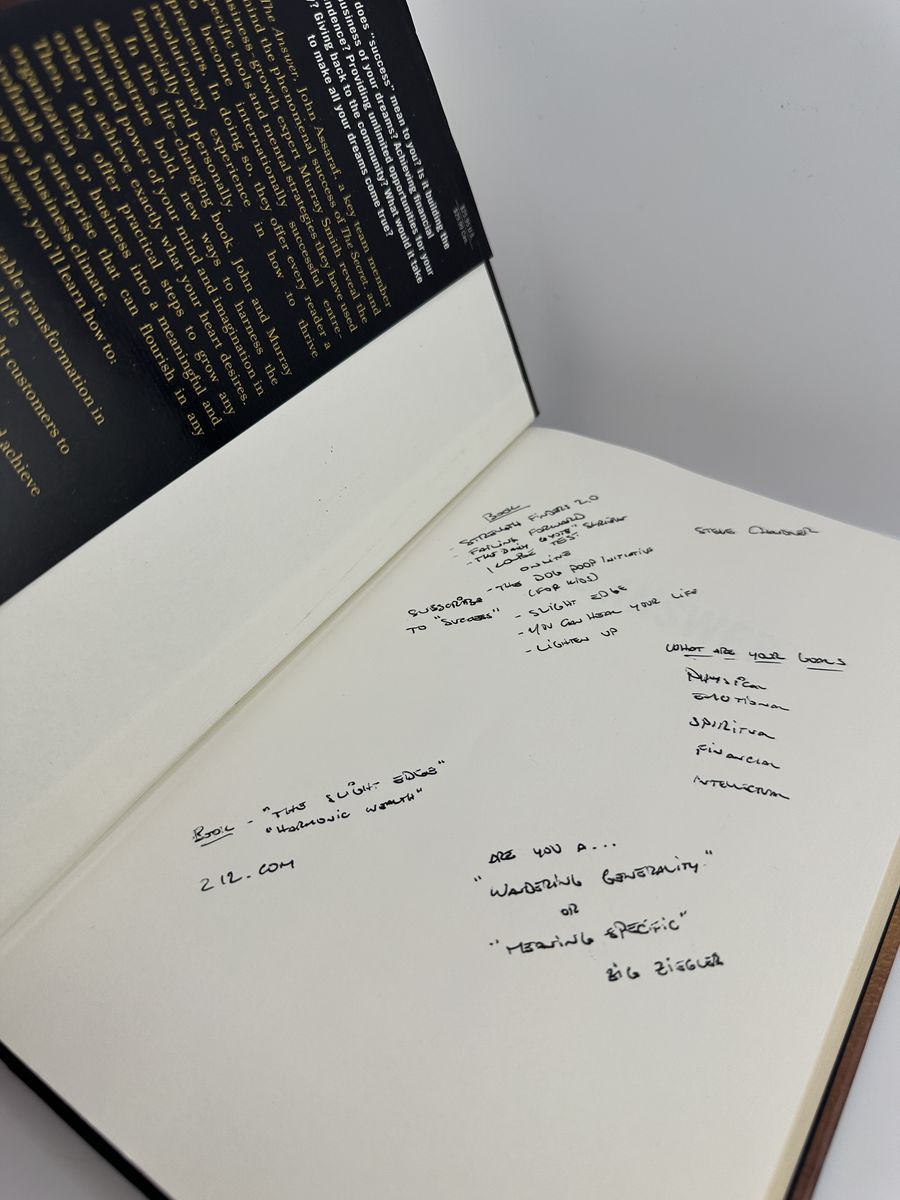 does "success" mean to you? Is it building the
business of your dreams? Achieving financial
ndence? Providing unlimited opportunities for your
y? Giving back to the community? What would it take
to make all your dreams come true?
The Answer, John Assaraf, a key team member
ind the phenomenal success of The Secret, and
siness-growth expert Murray Smith, reveal the
pecific tools and mental strategies they have used
to become internationally successful entre-
preneurs. In doing so, they offer every reader a
revolutionary experience in how to thrive
financially and personally.
In this life-changing book, John and Murray
demonstrate bold, new ways to harness the
unlimited power of your mind and imagination in
order to achieve exactly what your heart desires.
Then they offer practical steps to grow any
organization or business into a meaningful and
profitable enterprise that can flourish in any
economy or business climate.
Answer, you'll learn how to:
table transformation in
life
ht customers to
d achieve
BOOK
- STRENGTH FINDERS 2.0
- FAILING FORWARD
- THE DAILY QUOTE"
TEST
ONLINE
- THE DOG POOP INITIATIVE
(FOR KIDS)
SUBSCRIBE
TO "SUCCESS"
- SLIGHT EDGE
- YOU CAN HEAL YOUR LIFE
- LIGHTEN UP
STEVE CHANDLER
WHAT ARE YOUR GOALS
PHYSICAL
EMOTIONAL
SPIRITUAL
FINANCIAL
INTELLECTUAL
BOOK - "THE SLIGHT EDGE"
"HARMONIC WEALTH"
212.COM
ARE YOU A...
"WANDERING GENERALITY"
OR
"MEANING SPECIFIC"
ZIG ZIEGLER